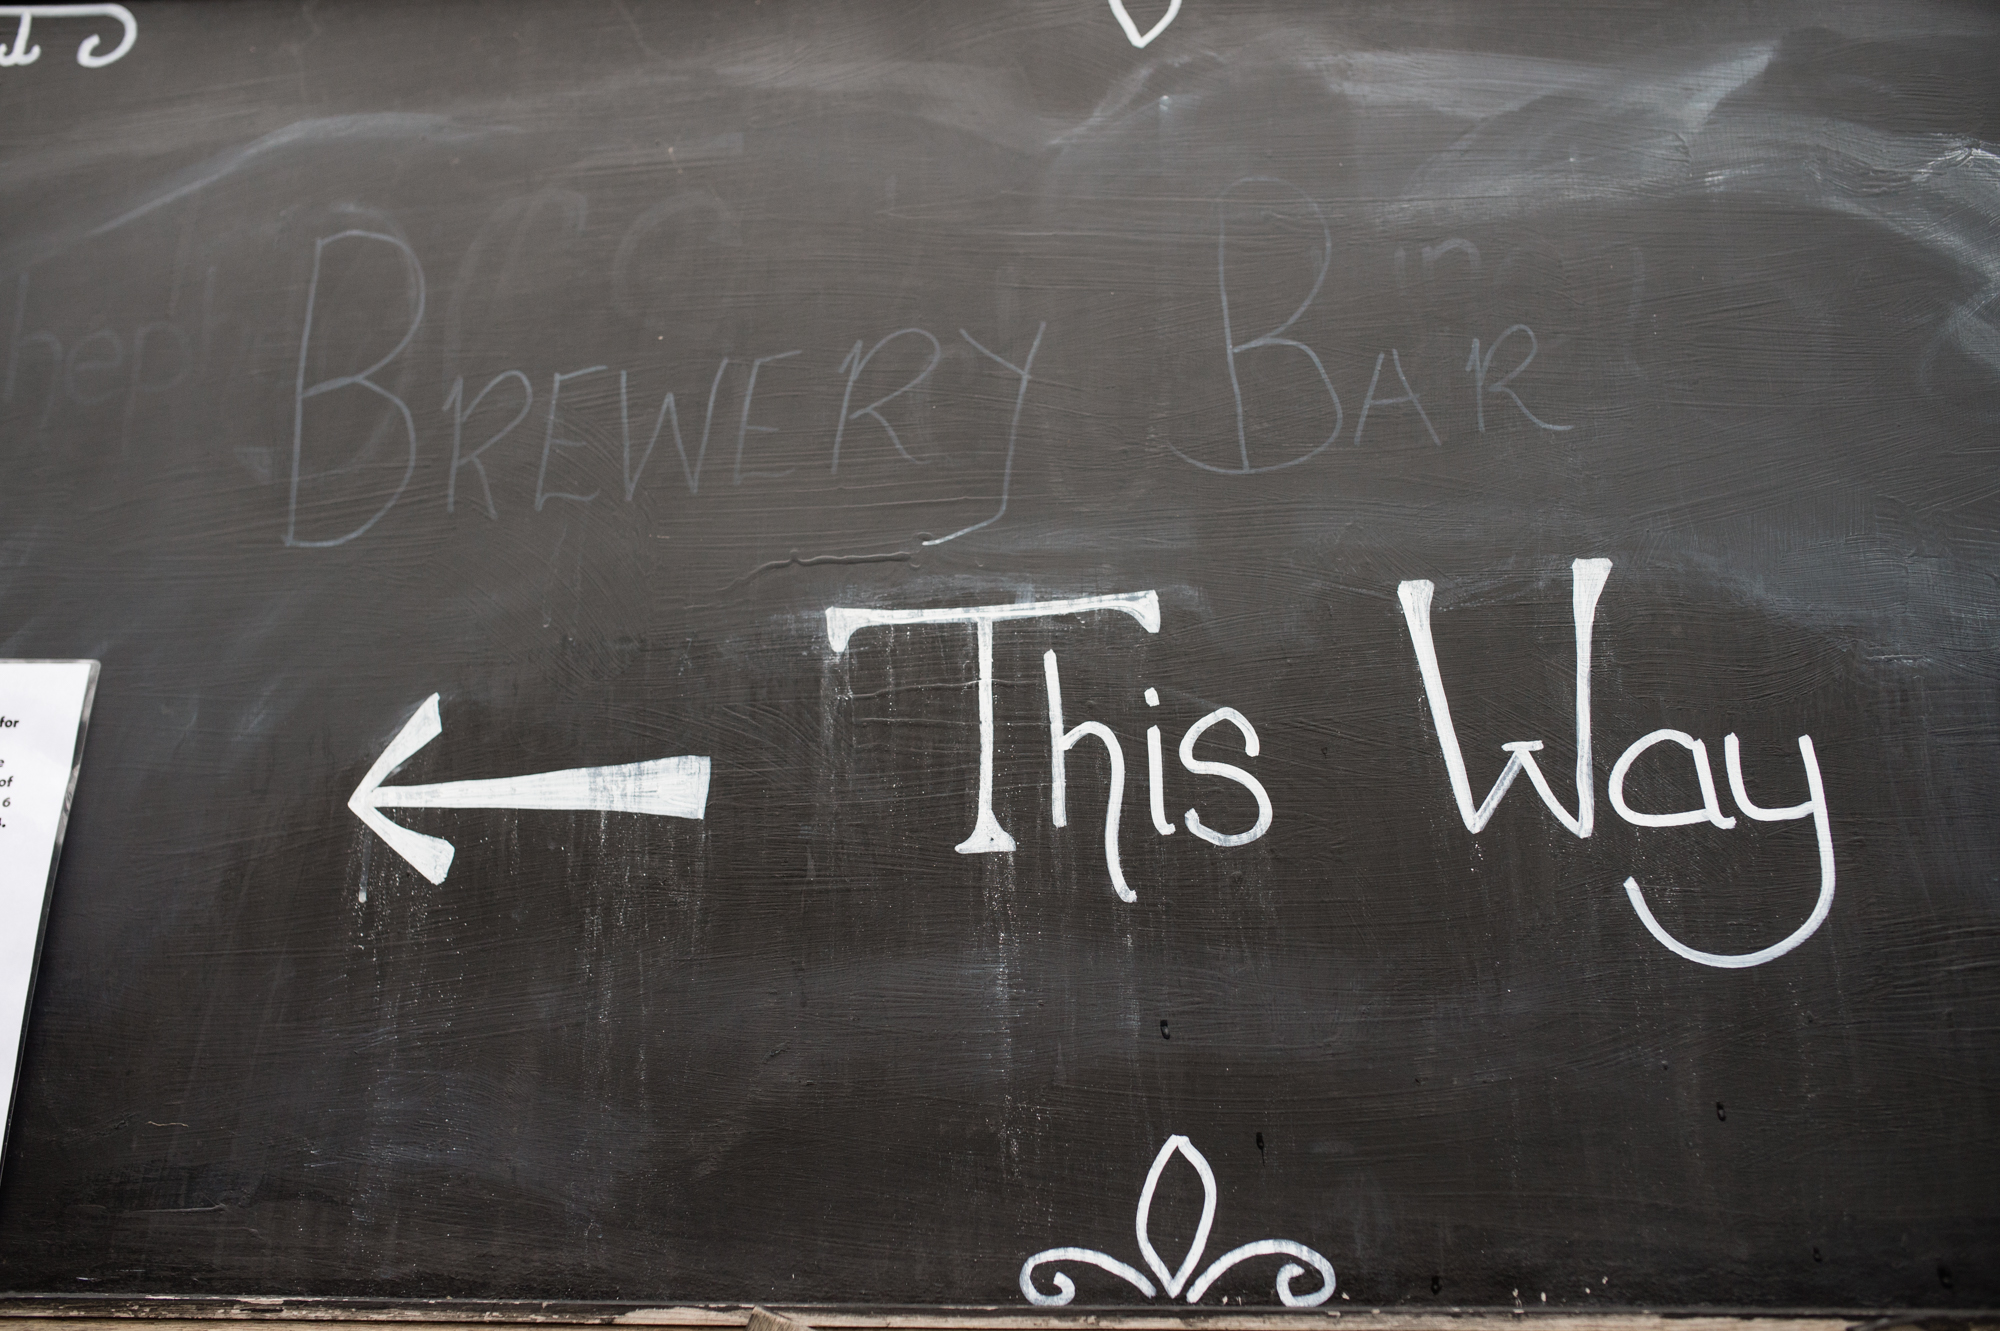 Brewery Bar
This Way
for
of
6